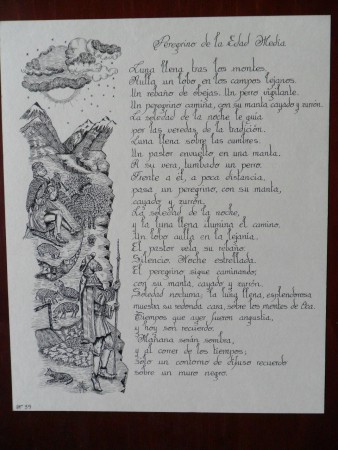 Peregrino de la Edad Media
Luna llena tras los montes.
Aulla un lobo en los campos lejanos.
Un rebaño de obejas. Un perro vigilante.
Un peregrino camina, con su manta, cayado y zurrón.
La soledad de la noche le guia
por las veredas de la tradición.
Luna llena sobre las cumbres.
Un pastor envuelto en una manta.
A su vera, tumbado un perro.
Frente a él, a poca distancia,
pasa un peregrino, con su manta,
cayado y zurrón.
La soledad de la noche,
y la luna llena ilumina el camino.
Un lobo aulla en la lejanía.
El pastor vela su rebaño.
Silencio. Noche estrellada.
El peregrino sigue caminando;
con su manta, cayado y zurrón.
Soledad nocturna; la luna llena, esplendorosa
muestra su redonda cara, sobre los montes de
Tiempos que ayer fueron angustia,
y hoy son recuerdo.
Mañana serán sombra,
y al correr de los tiempos;
sólo un contorno de difuso recuerdo
sobre un muro negro.